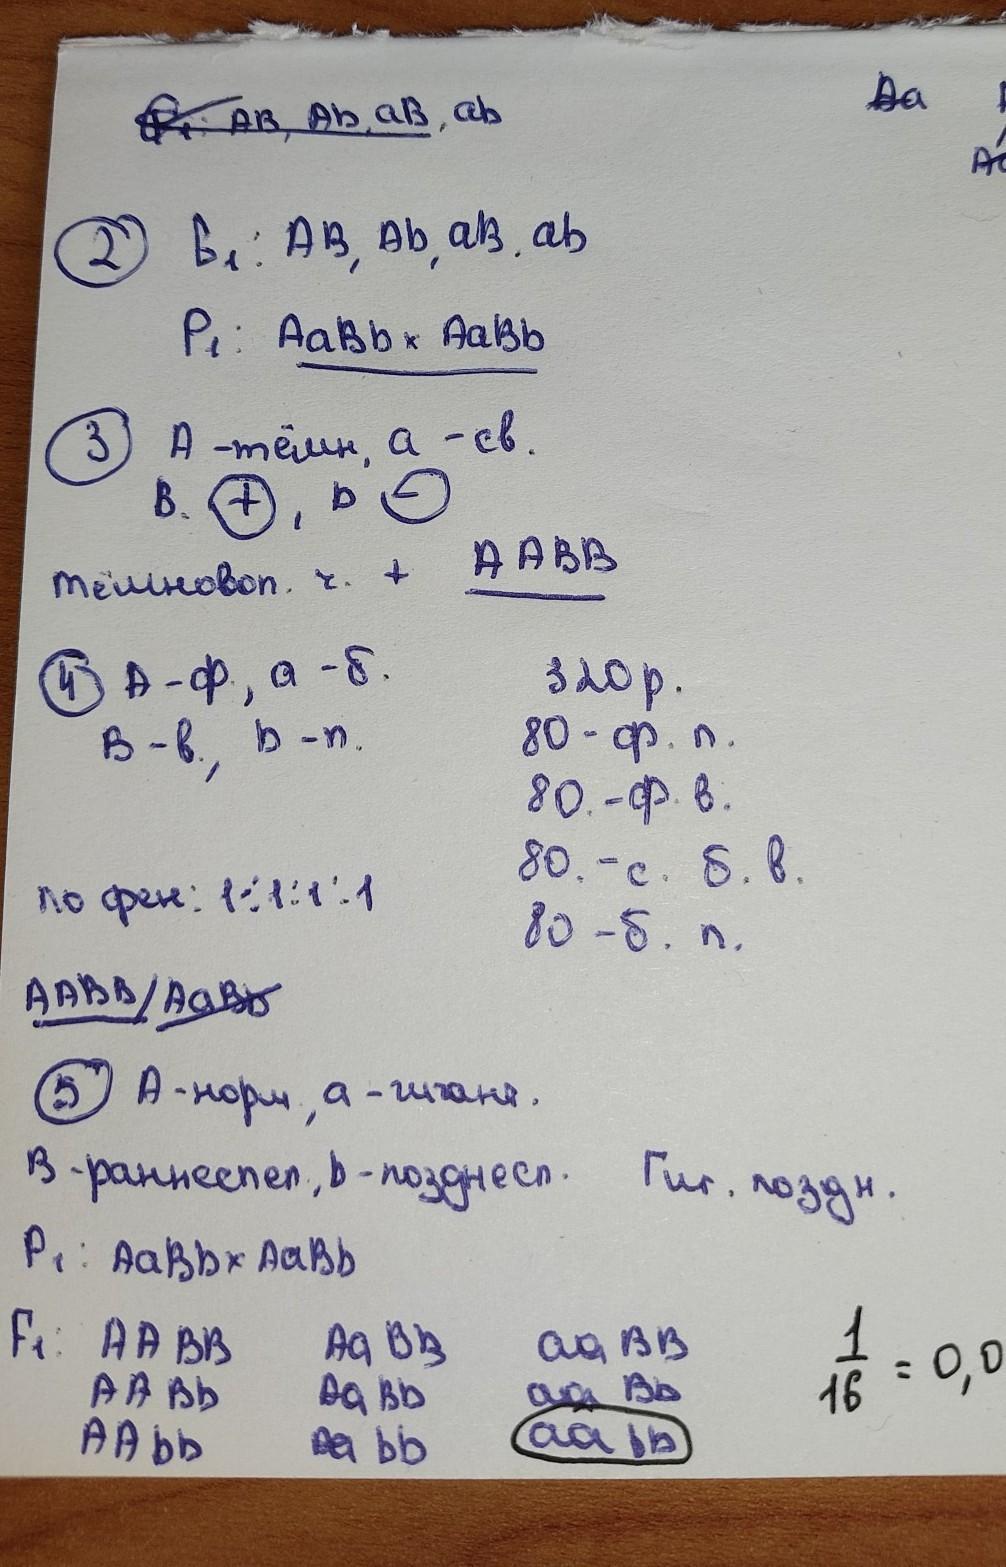 AB, Ab, aB, ab
Aa
2 G₁: AB, Ab, aB, ab
P₁: AaBb × AaBb
3 A - тёмн, a - св.
B. +, b -
тёмновол. г. + AABB
4 A - ф., a - б.
B - в., b - п.
320 р.
80 - ф. п.
80. - ф. в.
80. - с. б. в.
80 - б. п.
по фен: 1:1:1:1
AABB/AaBb
5 A - норм, a - гигант.
B - раннеспел., b - позднесп. Гиг. поздн.
P₁: AaBb × AaBb
F₁: AABB AaBB aaBB
AABb AaBb aaBb
AAbb Aabb aabb
1/16 = 0,0